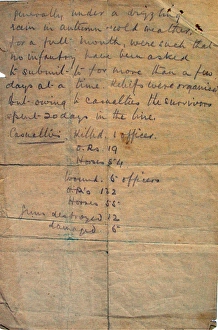 generally under a drizzle of
rain in autumn - cold weather,
for a full month, were such that
no infantry have been asked
to submit to for more than a few
days at a time. Reliefs were organised
but owing to casualties the survivors
spent 20 days in the line.
Casualties: Killed, 1 officer.
O.Rs. 19
Horses 54
Wound. 6 officers
O.R's 132
Horses 55
Guns destroyed 12
damaged 6